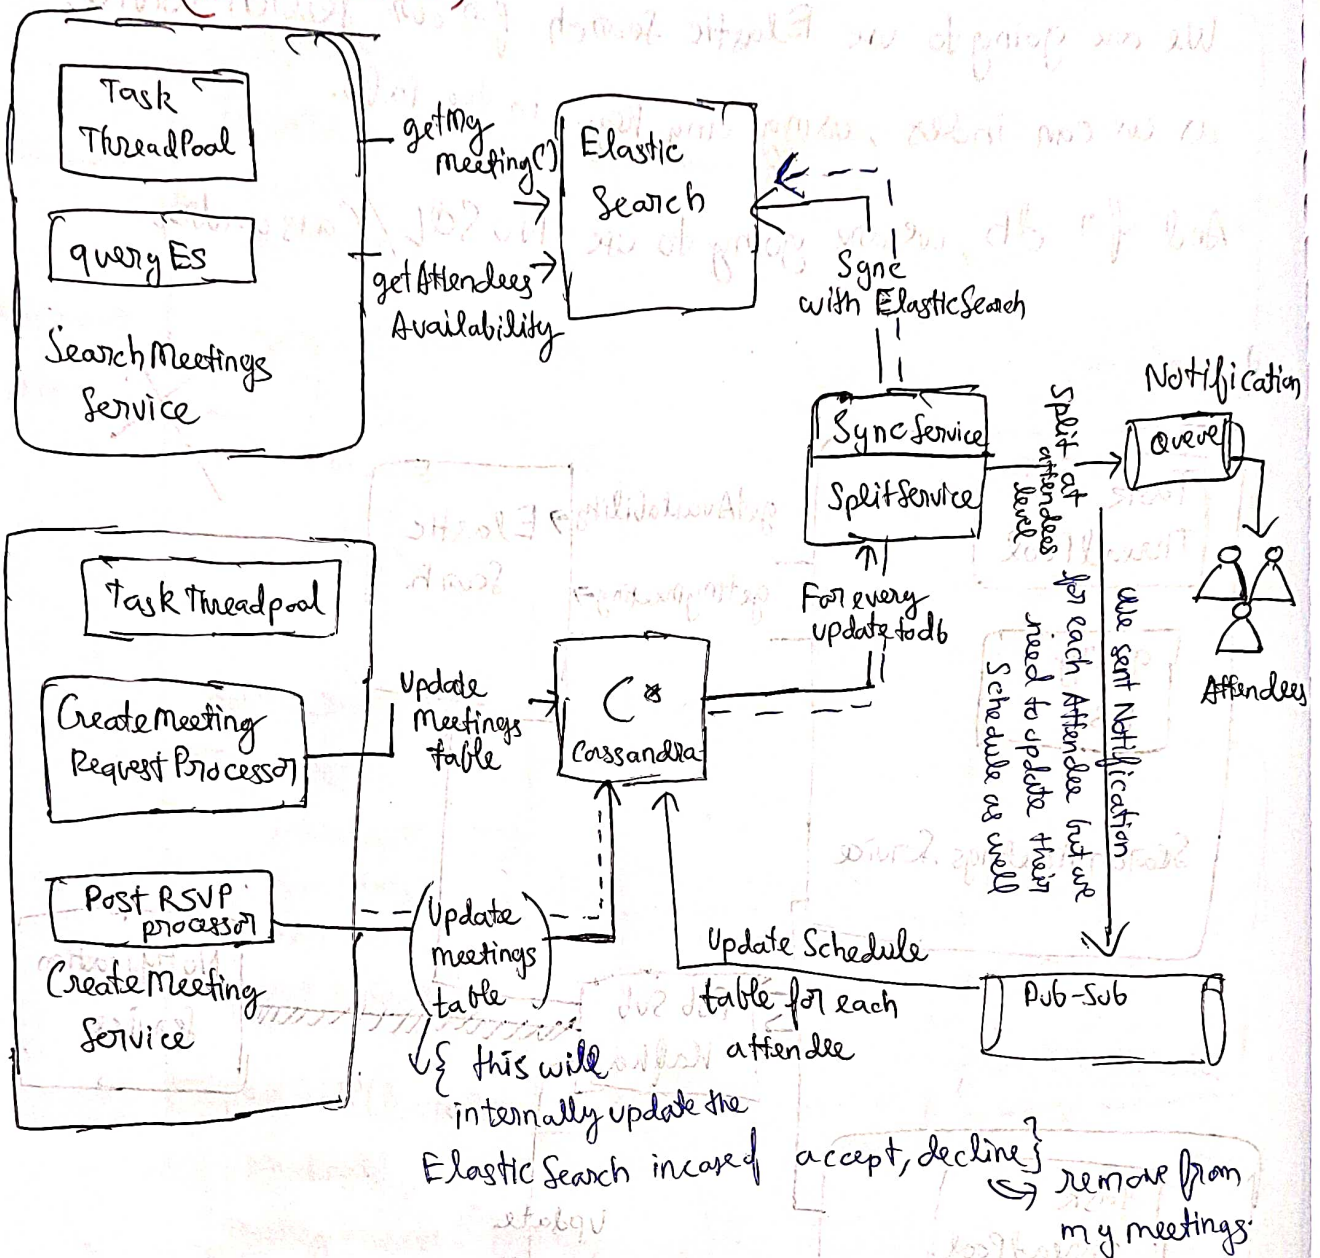 Task
ThreadPool
query ES
Search Meetings
Service
getMy
meeting()
getAttendees
Availability
Elastic
Search
Sync
with Elastic Search
Sync Service
Split Service
Split at
attendees
level
Notification
Queue
Attendees
For every
update to db
We sent Notification
for each Attendee but we
need to update their
Schedule as well
Task Threadpool
Create Meeting
Request Processor
Update
Meetings
table
C*
Cassandra
Post RSVP
processor
Create Meeting
Service
Update
meetings
table
Update Schedule
table for each
attendee
Pub-Sub
{ this will
internally update the
Elastic Search incase of accept, decline}
remove from
my meetings.